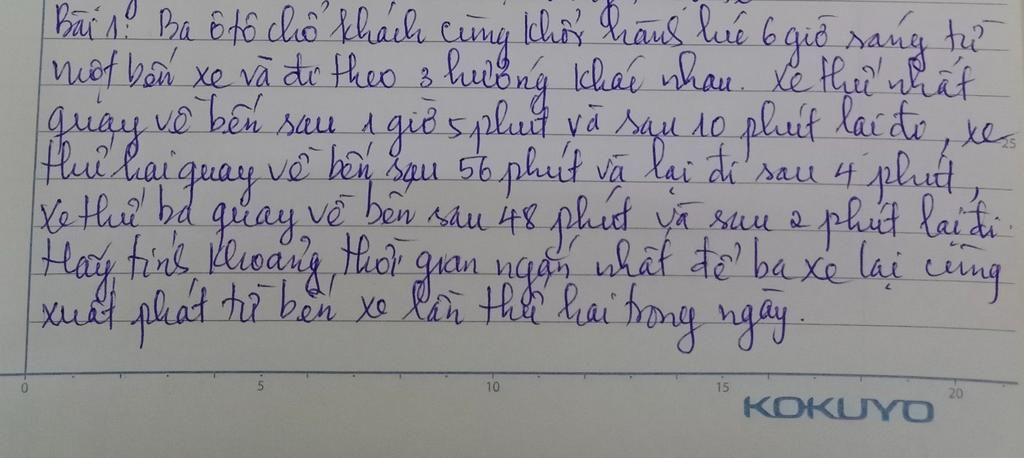 Bài 1: Ba ô tô chở khách cùng khởi hành lúc 6 giờ sáng từ
một bến xe và đi theo 3 hướng khác nhau. Xe thứ nhất
quay về bến sau 1 giờ 5 phút và sau 10 phút lại đi, xe
thứ hai quay về bến sau 56 phút và lại đi sau 4 phút,
xe thứ ba quay về bến sau 48 phút và sau 2 phút lại đi.
Hãy tính khoảng thời gian ngắn nhất để ba xe lại cùng
xuất phát từ bến xe lần thứ hai trong ngày.
0 5 10 15 20
25
KOKUYO